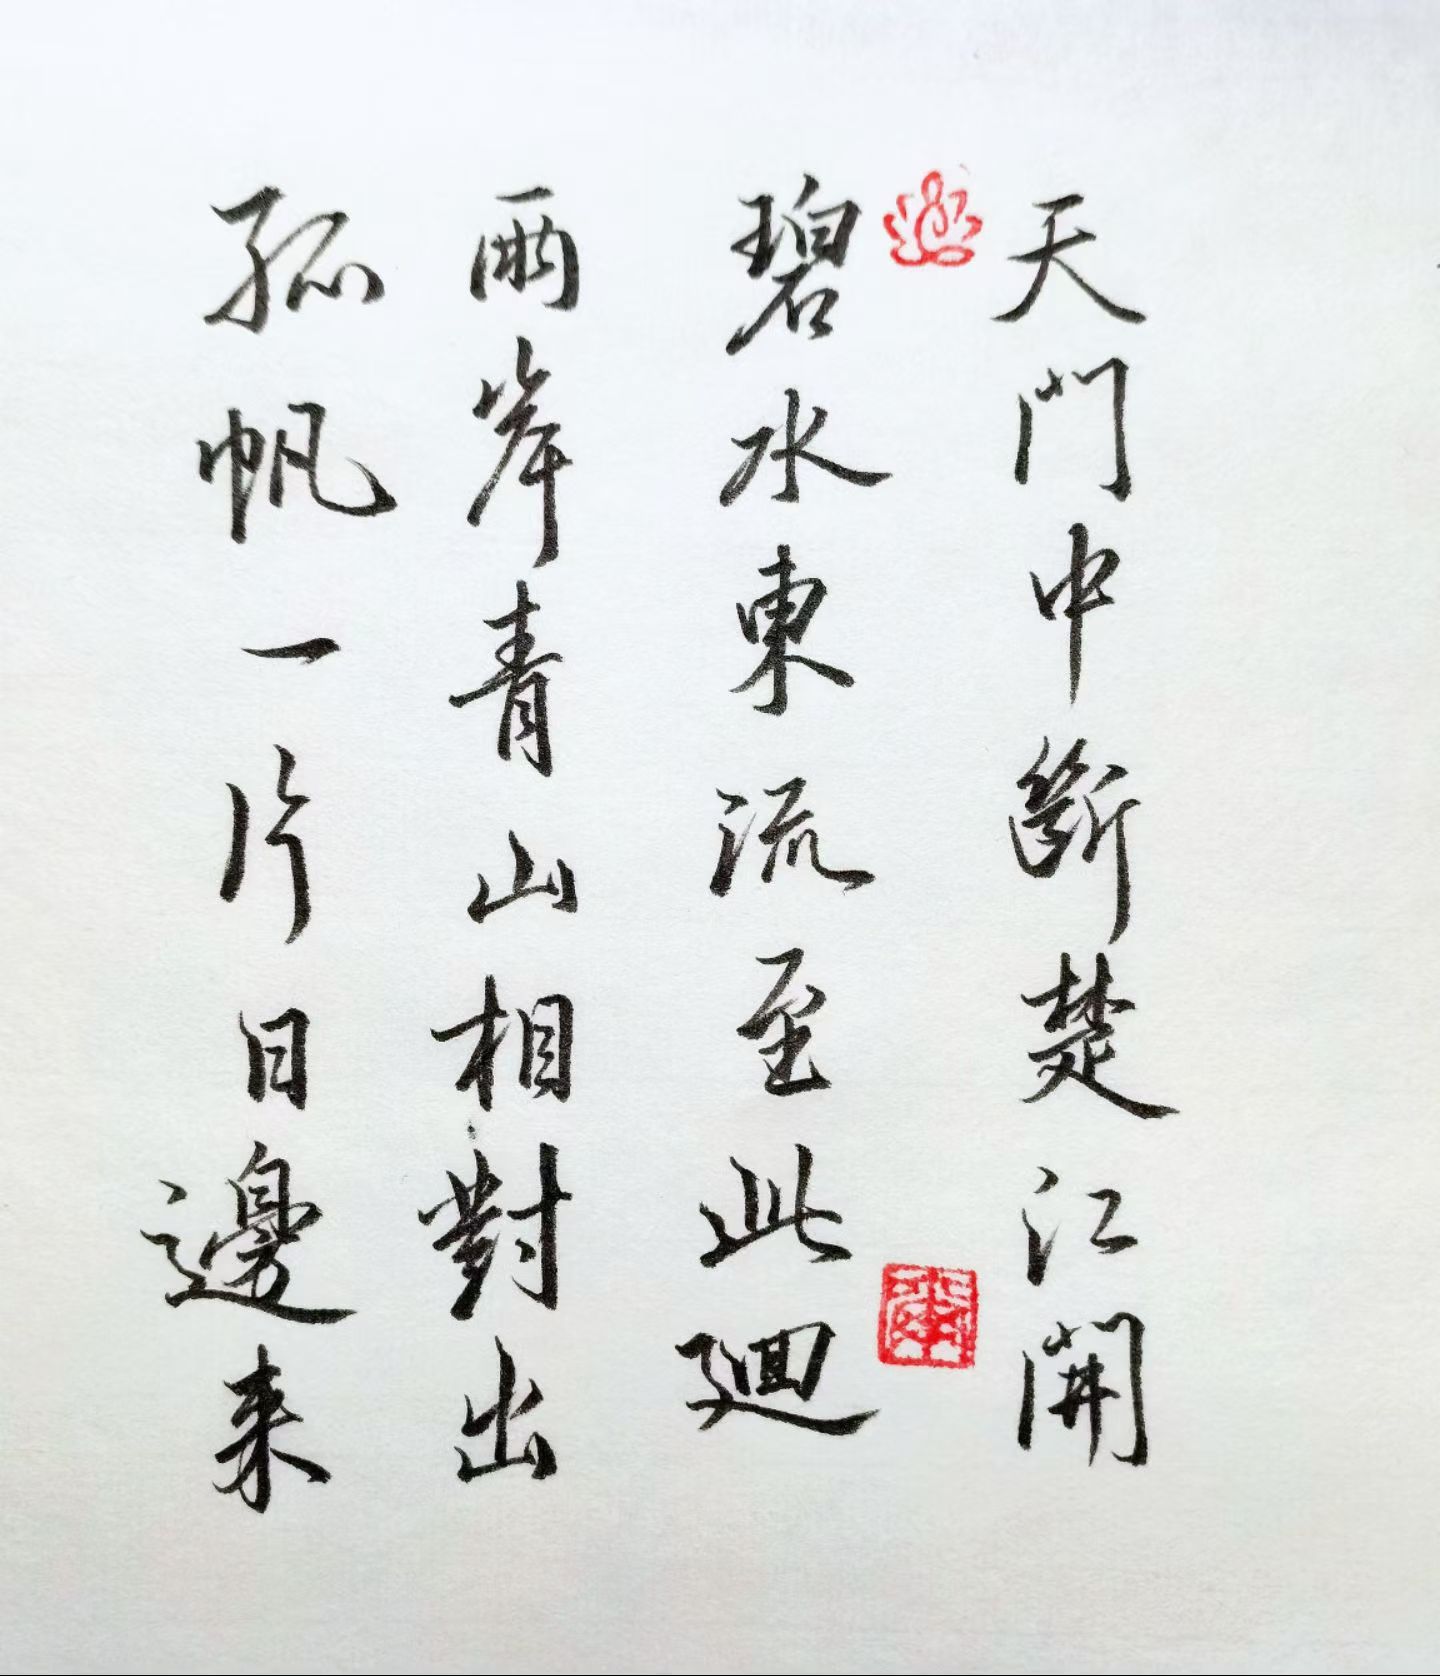 天門中斷楚江開
碧水東流至此迴
兩岸青山相對出
孤帆一片日邊来